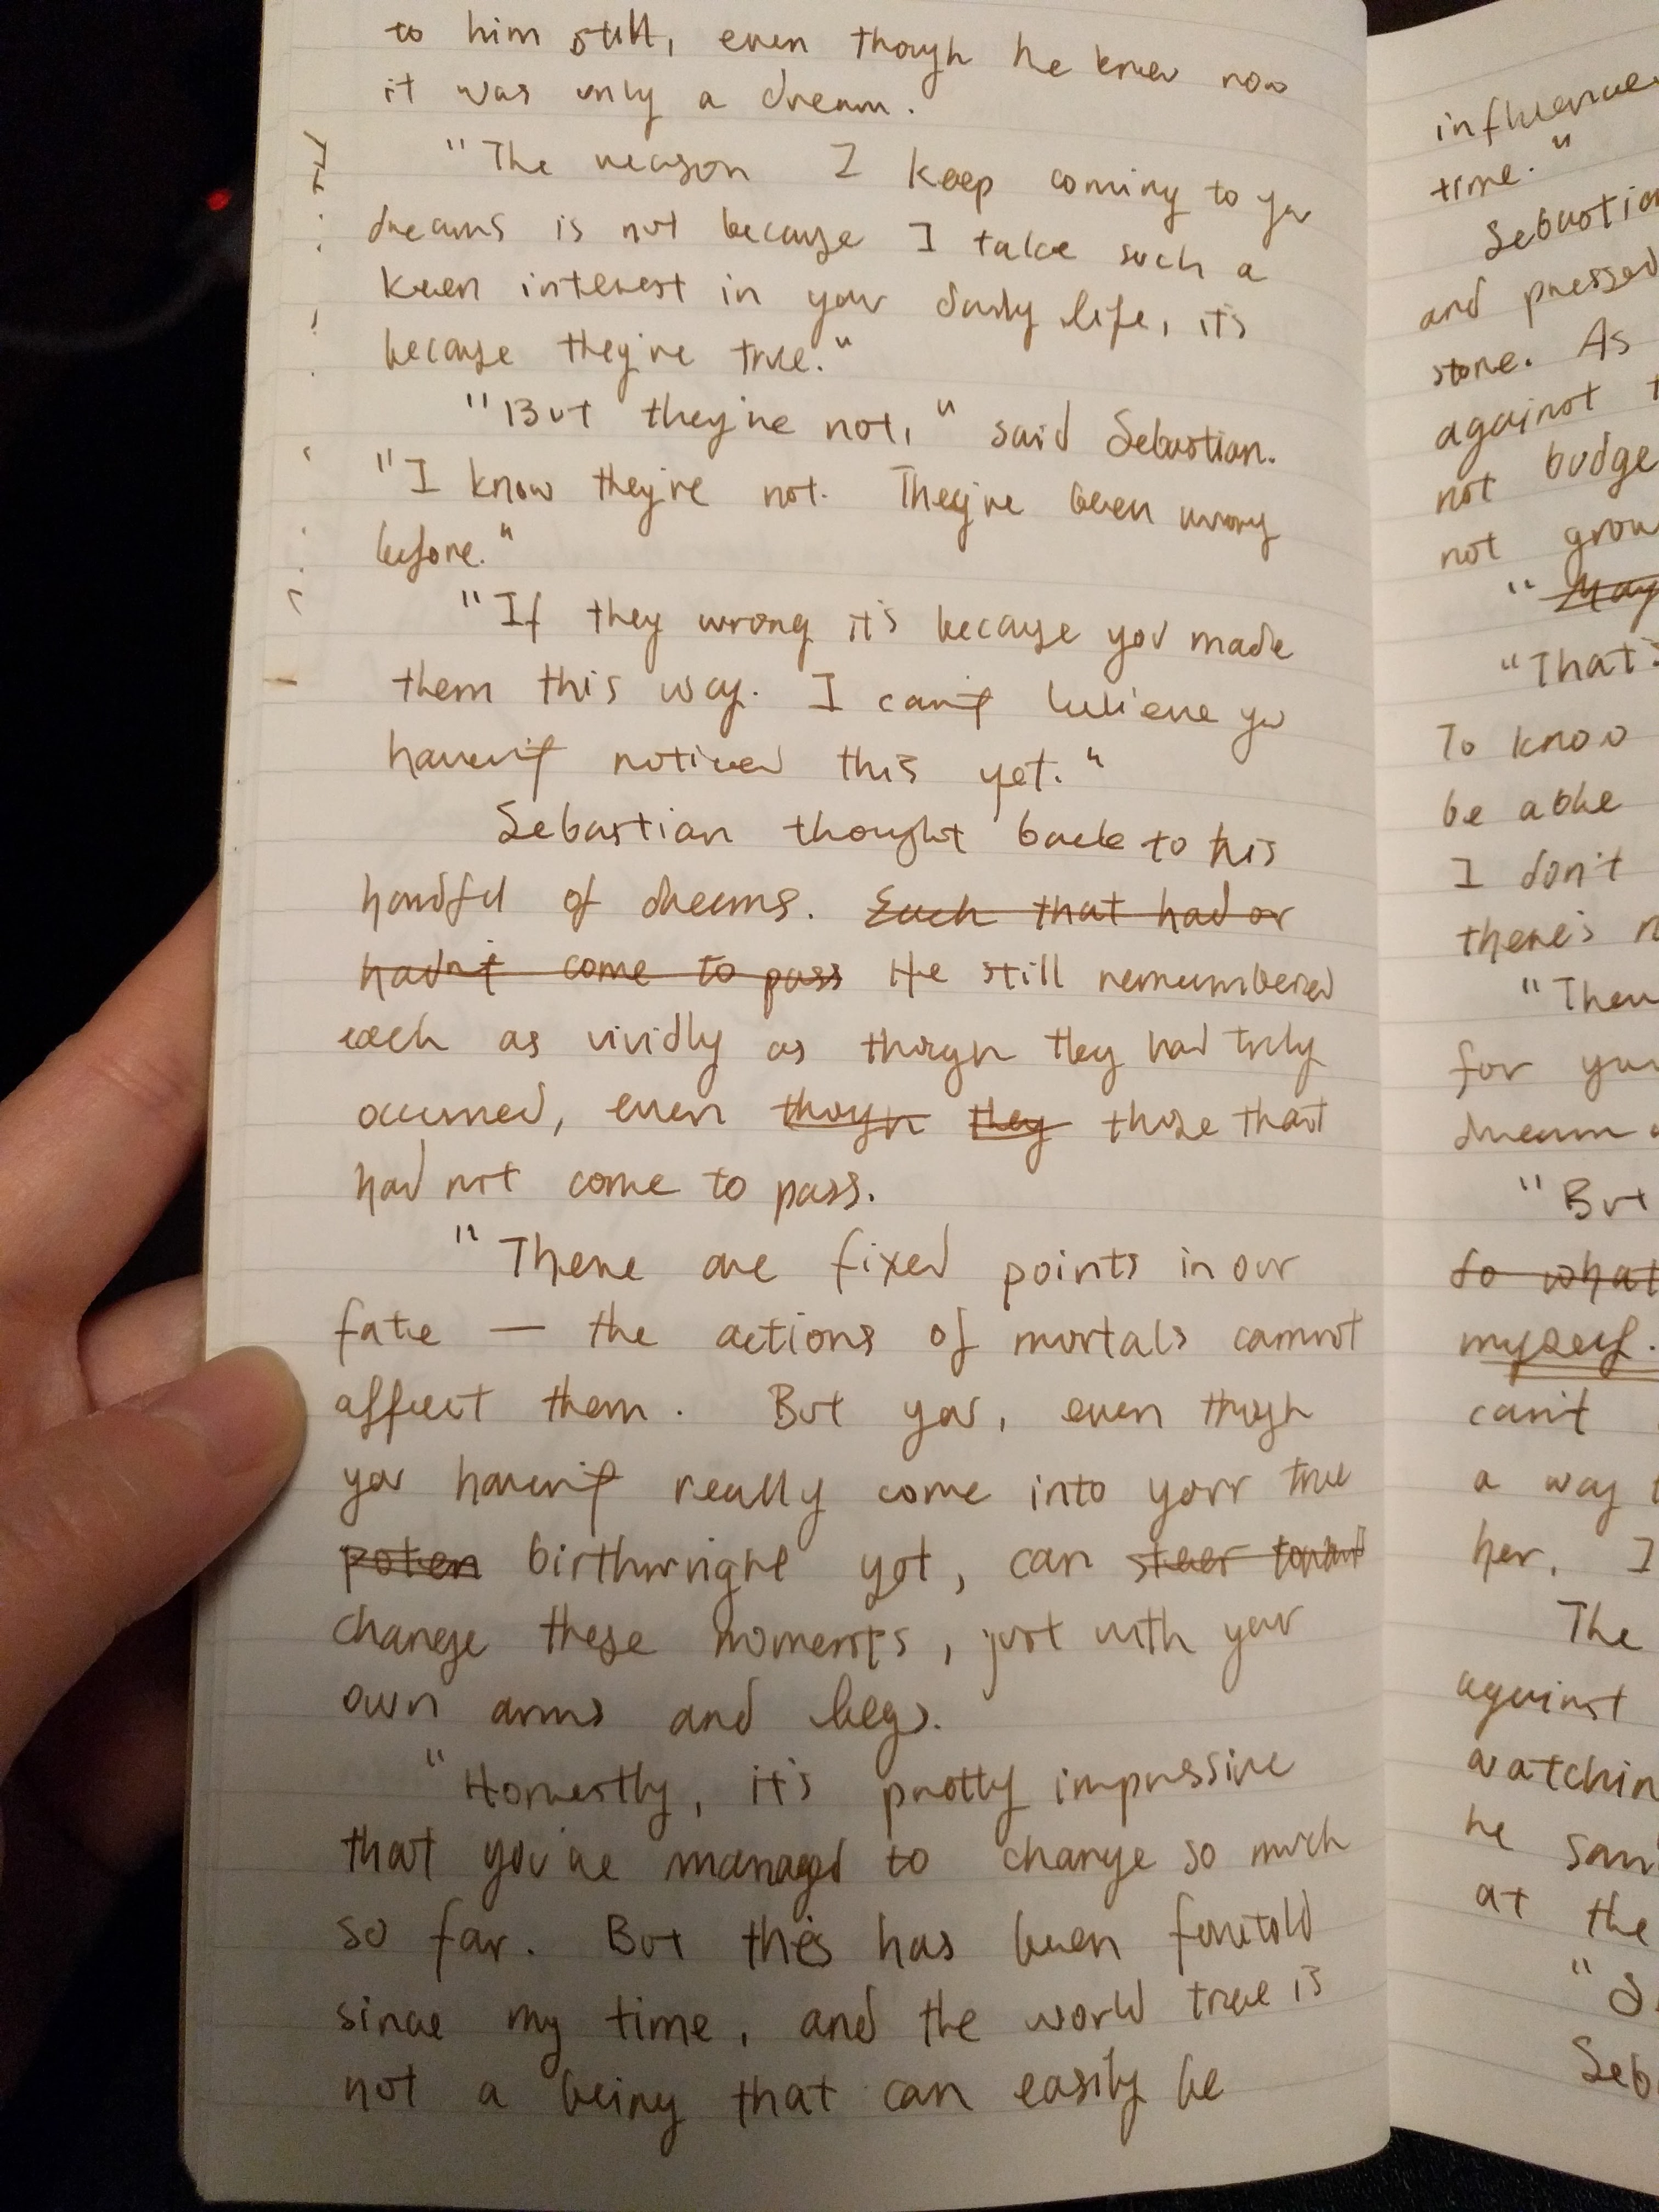 to him still, even though he knew now
it was only a dream.
"The reason I keep coming to you
dreams is not because I take such a
keen interest in your daily life, it's
because they're true."
"But they're not," said Sebastian.
"I know they're not. They've been wrong
before."
"If they wrong it's because you made
them this way. I can't believe you
haven't noticed this yet."
Sebastian thought back to his
handful of dreams. Each that had or
hadn't come to pass He still remembered
each as vividly as though they had truly
occurred, even though they those that
had not come to pass.
"There are fixed points in our
fate — the actions of mortals cannot
affect them. But you, even though
you haven't really come into your true
poten birthwright yet, can steer toward
change these moments, just with your
own arms and legs.
"Honestly, it's pretty impressive
that you've managed to change so much
so far. But this has been foretold
since my time, and the world tree is
not a being that can easily be
influence
time."
Sebastia
and pressed
stone. As
against t
not budge
not grow
"May
"That's
To know
be able
I don't
there's n
"Then
for you
dream
"But
so what
myself.
can't
a way t
her. I
The
against
watchin
he saw
at the
"S
Seb